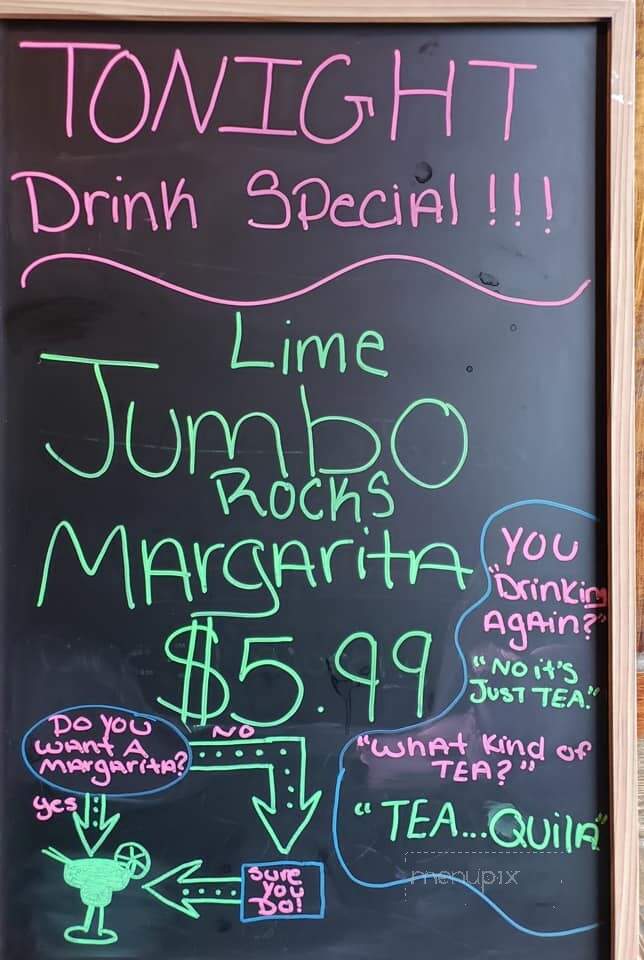 TONIGHT
Drink Special!!!
Lime
Jumbo
Rocks
Margarita
$5.99
YOU
"Drinking
Again?"
"NO it's
JUST TEA."
"What Kind of
TEA?"
"TEA...Quila"
Do you
want A
margarita?
NO
yes
Sure
you
Do!
menupix